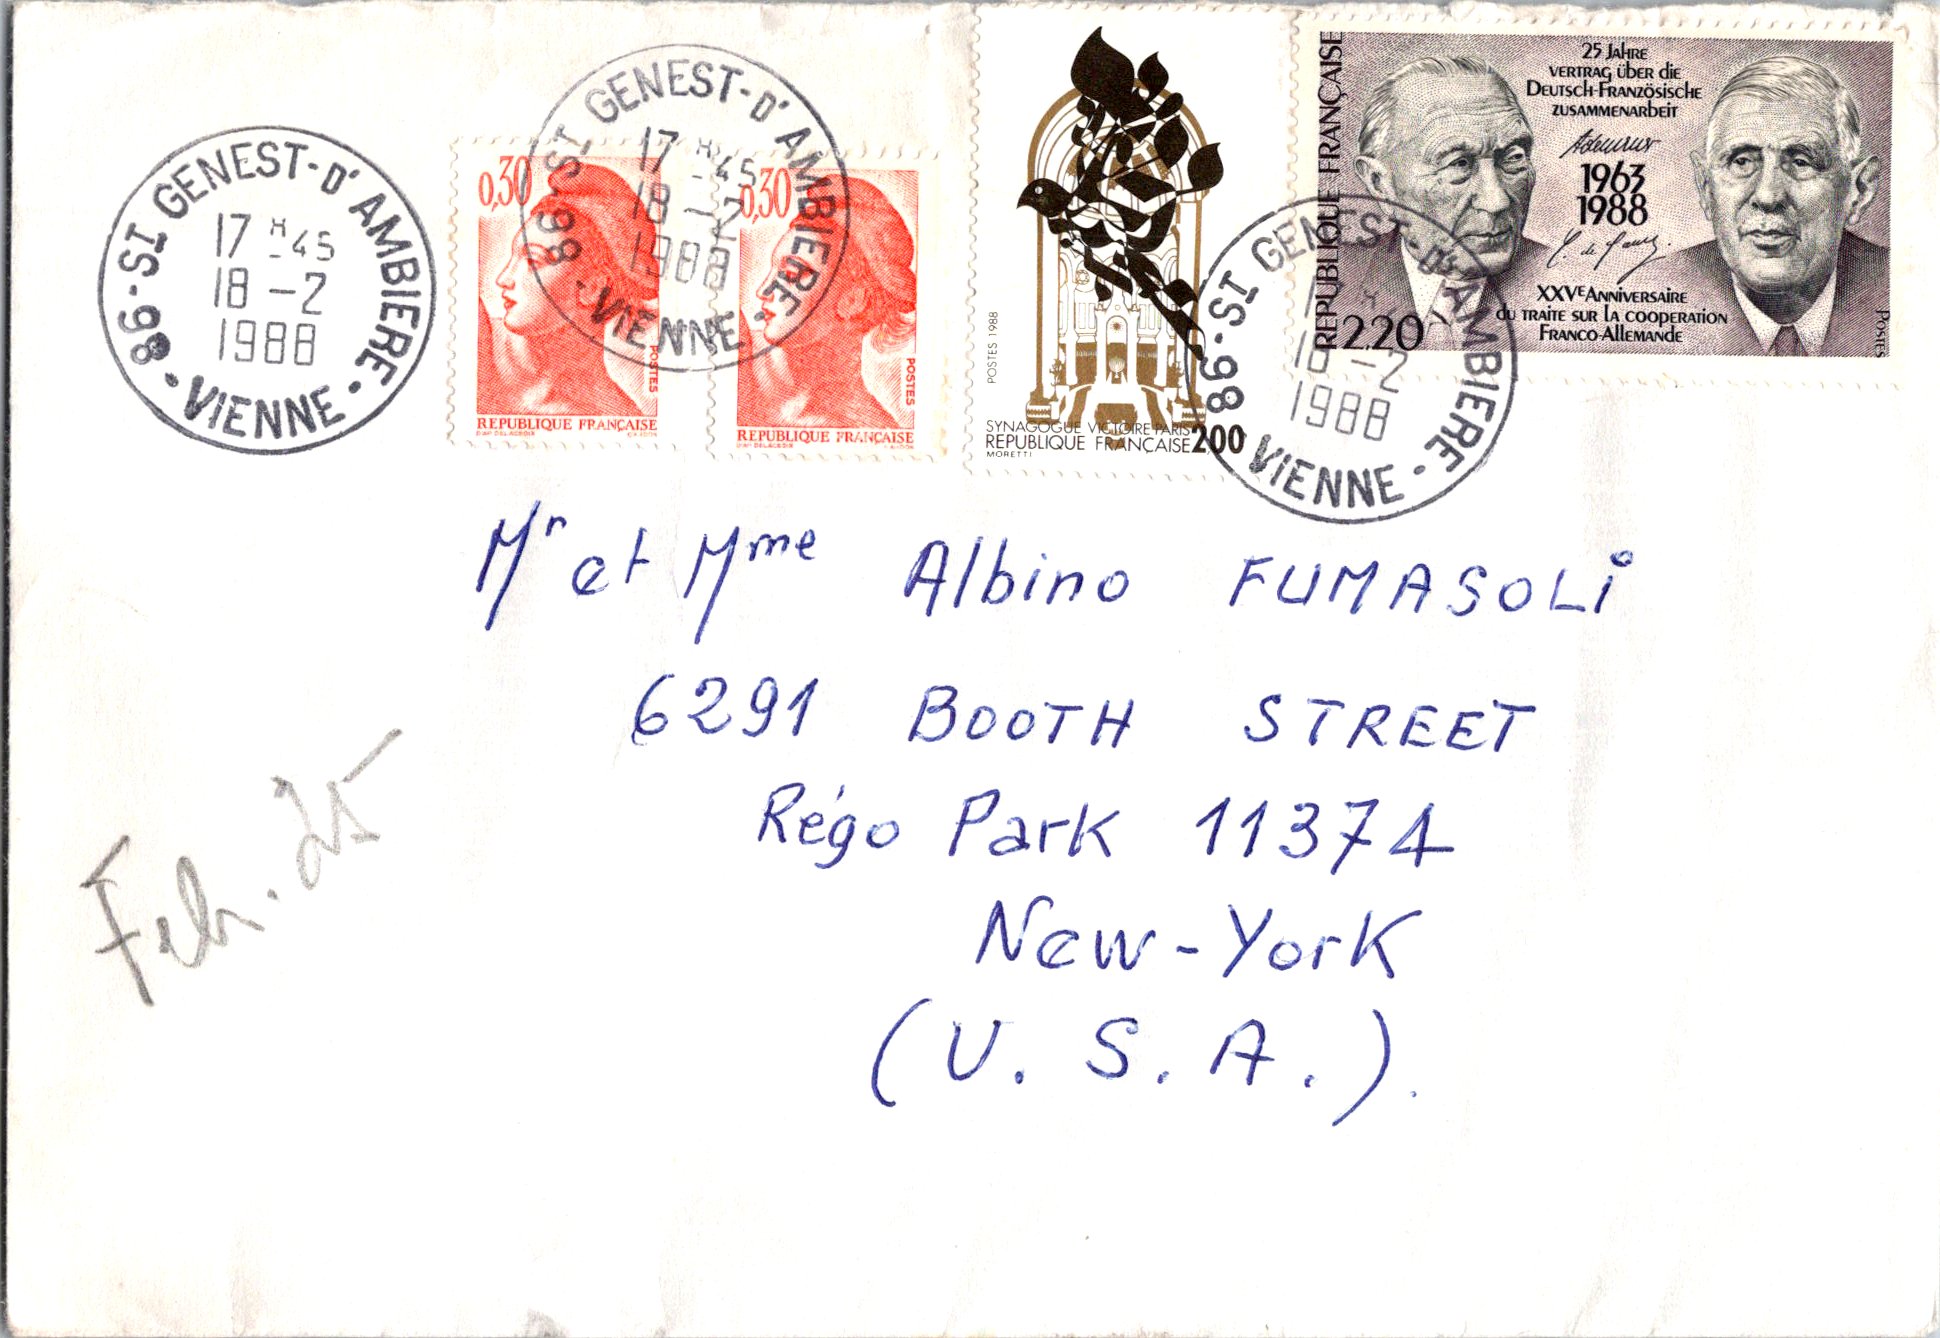 86-ST GENEST-D'AMBIERE
17 H 45
18 -2
1988
- VIENNE -
0,30
POSTES
REPUBLIQUE FRANÇAISE
D'AP. DELACROIX
86-ST GENEST-D'AMBIERE
17 H 45
18 -2
1988
- VIENNE -
0,30
POSTES
REPUBLIQUE FRANÇAISE
POSTES 1988
SYNAGOGUE VICTOIRE PARIS
REPUBLIQUE FRANÇAISE 2,00
MORETTI
REPUBLIQUE FRANÇAISE
25 JAHRE
VERTRAG über die
DEUTSCH-FRANZÖSISCHE
ZUSAMMENARbEIT
Adenauer
1963
1988
C. de Gaulle.
XXVe ANNIVERSAIRE
DU TRAITE SUR LA COOPERATION
FRANCO-ALLEMANDE
2.20
POSTES
86-ST GENEST-D'AMBIERE
18 -2
1988
VIENNE -
Mr et Mme Albino FUMASOLi
6291 BOOTH STREET
Régo Park 11374
New-York
(U.S.A.).
Feb. 25